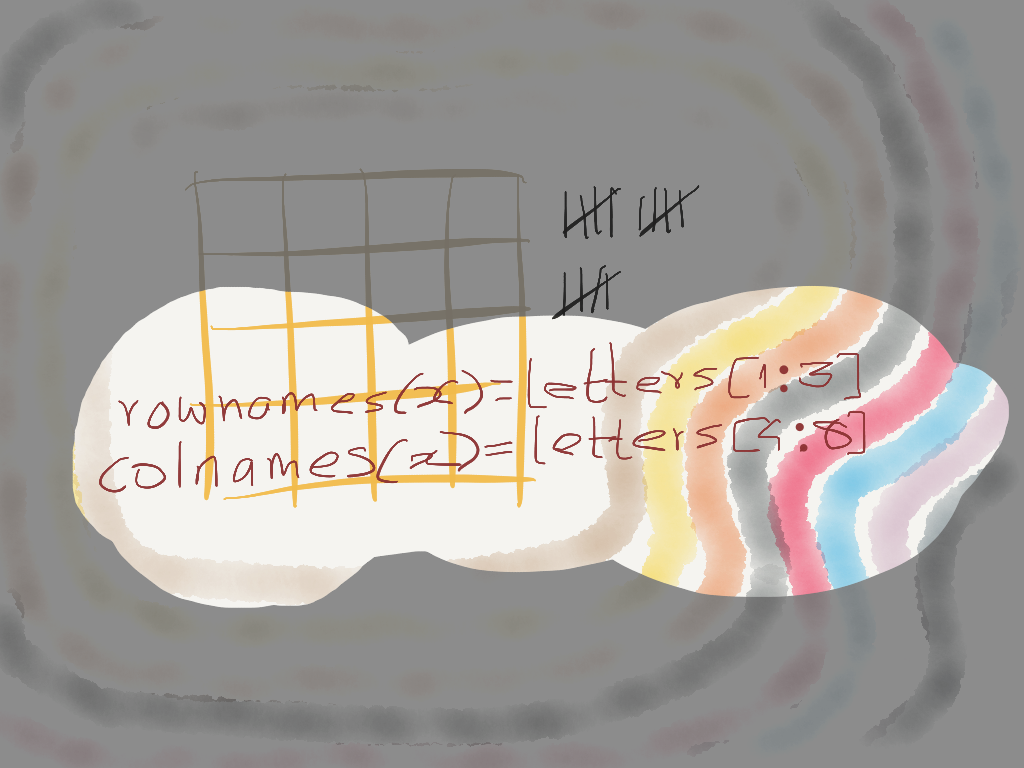 rownames(x)=letters[1:3]
colnames(x)=letters[4:6]